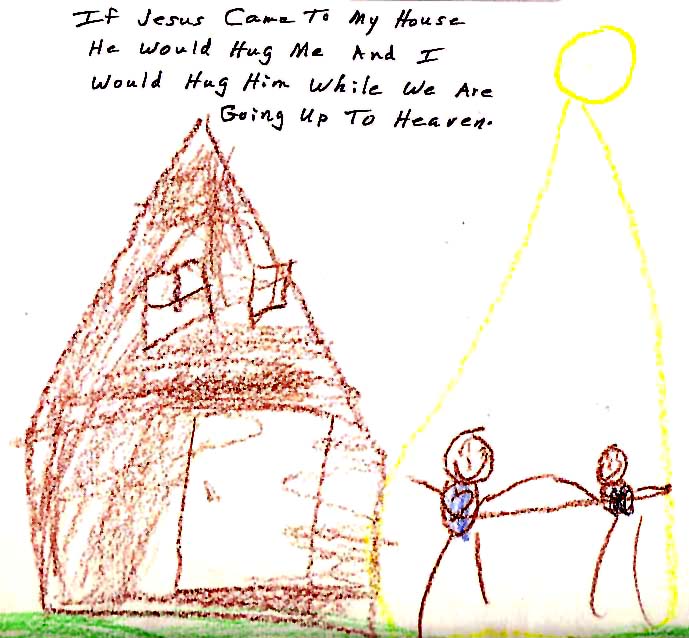 If Jesus Came To My House
He Would Hug Me And I
Would Hug Him While We Are
Going Up To Heaven.